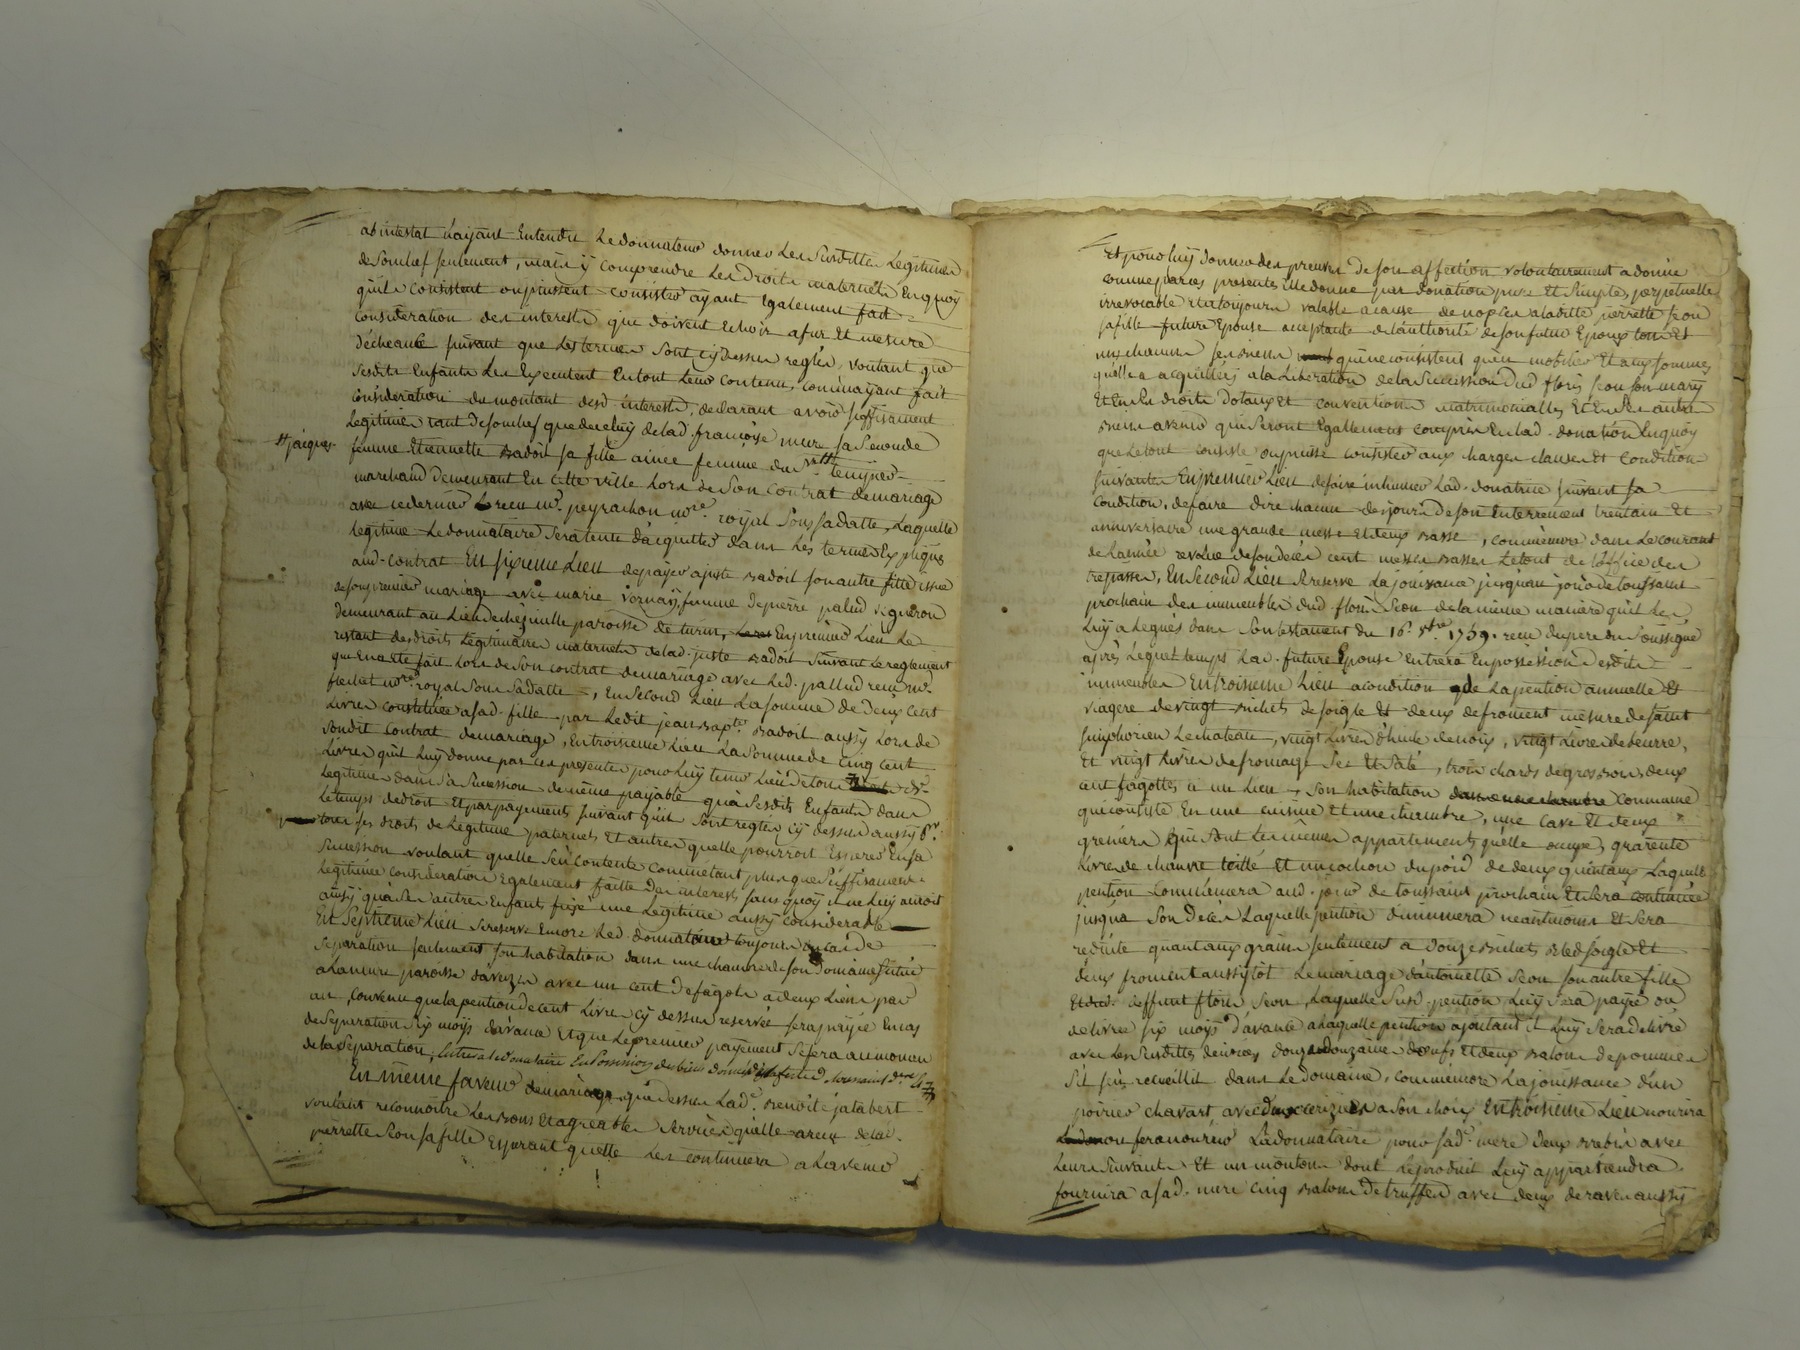 ab intestat n'ayant Entendu Le donnateur donner Les Susdittes Legitimes
de Son chef seulement, mais y Comprendre Les Droits maternels En quoy
quils Consistent ou puissent consister ayant Egalement fait
Consideration des interests que doivent Echoir a fur Et mesure
d'echeance suivant que Les termes Sont cy Dessus reglés, voulant que
Sesdits Enfants Les Executent En tout Leur Contenu, comm'ayant fait
Considération du montant desd. interests, declarant avoir suffisament
Legitimée tant de son chef que de celuy de lad. françoise mure sa Seconde
# jacques
femme Etiennette Badoit sa fille ainée femme du sr # tenijier
marchand demeurant En Cette ville Lors de Son Contrat de mariage
avec ce dernier Recu me. peyrachon nore. royal Sous sa datte, Laquelle
legitime Le donnataire Sera tenu d'aiquitter dans Les termes Expliqués
aud. contrat En sixieme Lieu de payer a juste Badoit son autre fille issue
de son premier mariage avec marie voznay, femme de pierre palud vigneron
demeurant au Lieu de chejniolle paroisse de turin, En premier Lieu Le
restant des droits Legitimaires maternels de lad. juste Badoit Suivant Le reglement
que En a eté fait Lors de Son contrat de mariage avec Led. pallud recu me.
nore. royal Sous Sa datte, En Second Lieu La somme de deux Cent
Livres constituée a sad. fille par Ledit jean Bapte. Badoit aussy Lors de
Sondit Contrat de mariage, En troisieme Lieu La Somme de Cinq Cent
Livres qu'il Luy donne par ces presentes pour Luy tenir Lieu de tous #
Legitimes dans sa Succession de même payable qu'a Sesdits Enfants dans
Le temps de droit Et par payements suivant qu'il Sont reglés cy dessus aussy pr.
tous ses droits de Legitime paternels Et autres quelle pourroit Esperer En sa
Succession voulant quelle S'en Contente Comme étant plus que Suffisament
legitimée consideration Egalement faitte des interests sans quoy il ne Luy auroit
aussy qu'a Ses autres Enfants fixé une Legitime aussy Considerable
En Septieme Lieu Se reserve Encore Led. donnateur toujours En cas de
Separation seulement son habitation dans une chambre de son Domaine Situé
a La meme paroisse d'avezes avec un cent de fagots a deux Liens par
an, Convenu que la pention de cent Livres cy dessus reservée sera payée En cas
de Separation Six moys d'avance Et que Le premier payement Se fera au momen
de la Separation, Entrera le donataire En Possession des biens donnés a la feste de toussaints
En même faveur de mariage que dessus Lad. Benoite jatabert
voulant reconnoitre Les Bons Et agreables Services quelle a recu de lad.
pierrette Seon sa fille Esperant quelle Les continuera a L'avenir
Et pour Luy donner des preuves de son affection volontairement a donné
comme par ces presentes Elle donne par donation pure Et Simple, perpetuelle
irrevocable Et a toujours valable a cause de noces a laditte pierrette seon
sa fille future Epouse acceptante de l'authorité de son futur Epoux tous Et
un chacuns ses Biens qui ne consistent qu'en mobilier Et aux sommes
quelle a acquittées a la Liberation de la Succession dud. floris seon son mary
Et En Ses droits dotaux Et conventions matrimonialles Et En Ses autres
Biens avenir qui Seront Egallement Compris En lad. donation En quoy
que Le tout consiste ou puisse consister aux charges clauses Et Conditions
suivantes En premier Lieu de faire inhumer Lad. donatrice suivant sa
Condition, de faire dire chacun des jours De son Enterrement trentain Et
anniversaire une grande messe Et deux Basse, comm'encore dans Le courant
de L'année revolue de son deces cent messes Basses Le tout de l'office des
trepassés, En Second Lieu Se reserve La jouissance jusqu'au jour de toussaint
prochain des immeubles dud. floris Seon de la meme maniere qu'il Les
Luy a Legués dans Son testament du 16e. 1759. recu du pere du Soussigné
après Lequel temps Lad. future Epouse Entrera En possession desdits
immeubles En troisieme Lieu a condition de La pention annuelle Et
viagere de vingt Bichets de soigle Et deux de froment mesure de saint
Simphorien Le chateau, vingt Livres d'huile de noix, vingt Livres de beurre,
Et vingt Livres de fromage Sec Et Salé, trois chards de gros Bois, deux
cent fagottes a un Lien, Son habitation dans une chambre Commune
qui consiste En une cuisine Et une chambre, une Cave Et deux
greniers qui Sont Les mêmes appartements quelle occupe, quarente
Livres de chanvre teillé Et un cochon du poid de deux quintaux Laquelle
pention Commencera aud. jour de toussaint prochain Et Sera continuée
jusqua Son Deces Laquelle pention diminuera neantmoins Et Sera
reduite quant aux grains seulement a douze Bichets Bled soigle Et
deux froment aussytôt Le mariage d'antoinette Seon son autre fille
Et dud. deffunt floris Seon, Laquelle Susd. pention Luy Sera payée ou
delivrée six moys d'avance a Laquelle pention ajoutant il Luy Sera delivré
avec Les Susdittes denrées douze douzaines d'oeufs Et deux Balons de pommes
S'il s'en recueillit dans Le Domaine, comm'encore La jouissance d'un
poirier chavart avec deux cerizier a Son choix En troisieme Lieu nourira
ou fera nourrir La donnataire pour sade. mere deux Brebis avec
Leurs Suivants Et un mouton dont Le produit Luy appartiendra
fournira a sad. mere cinq Balons de truffes avec deux de raves aussy